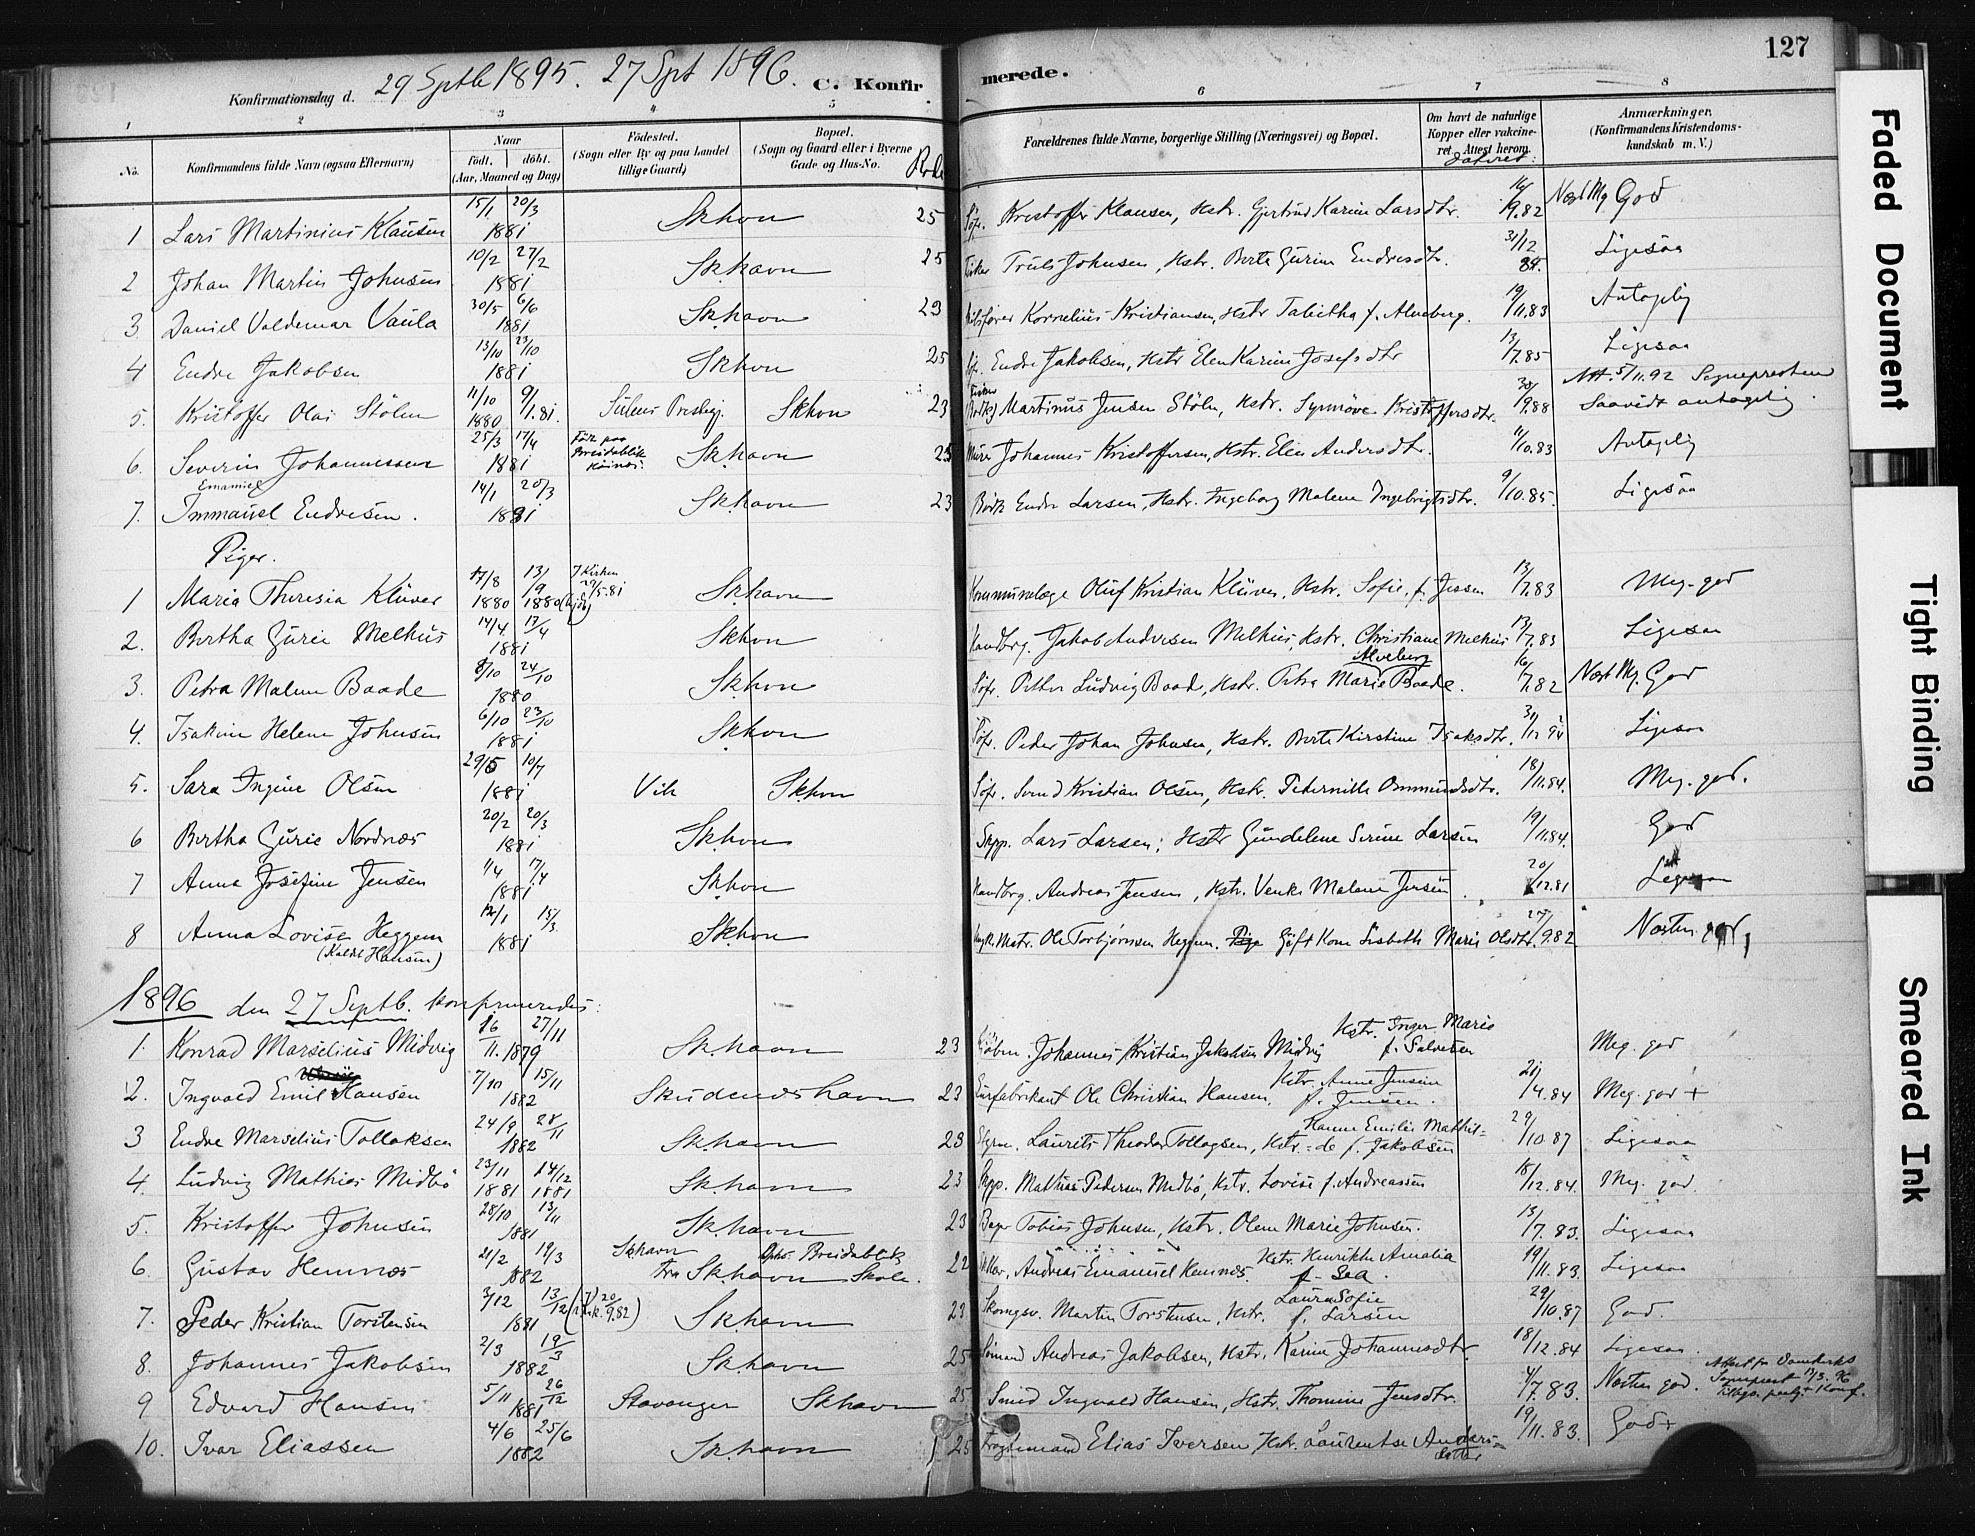 127
Konfirmationsdag d. 29 Septb 1895. 27 Spt 1896. C. Konfirmerede.
1 2 3 4 5 6 7 8
No. Konfirmandens fulde Navn (ogsaa Efternavn) Naar født. døbt. (Aar, Maaned og Dag) Fødested. (Sogn eller By og paa Landet tillige Gaard) Bopæl. (Sogn og Gaard eller i Byerne Gade og Hus-No. Rode Forældrenes fulde Navne, borgerlige Stilling (Næringsvei) og Bopæl. Om havt de naturlige Kopper eller vakcineret. Attest herom dateret: Anmærkninger. (Konfirmandens Kristendomskundskab m. V.)
1 Lars Martinius Klausen 15/1 20/3 1881 Skhvn 25 Sjf. Kristoffer Klausen, Hstr. Gjertrud Karine Larsdtr. 9.82 Næst Mg God
2 Johan Martin Johnsen 10/2 27/2 1881 Sk.havn 25 Fisker Truls Johnsen, Hstr. Berte Gurine Endresdtr. 31/12 84. Ligesaa
3 Daniel Valdemar Vaula 30/5 6/6 1881 Sk.havn 23 Kornelius Kristiansen, Hstr Tabitha f. Alveberg. 19/11.83 Antagelig
4 Endre Jakobsen 13/10 23/10 1881 Skhvn 25 Endre Jakobsen, Hstr Elen Karine Josefsdtr 13/7.85 Ligesaa
5. Kristoffer Olai Stølen 11/10 1880 9/1.81. Sulens Prestegj. Skhvn 23 Fisker Martinus Jensen Stølen, Hstr. Synnøve Kristoffersdtr. 30/9.88 Att. 5/11.92 Sognepresten Saavidt antagelig.
6. Severin Johannessen 25/3 17/4 1881 Født paa Breidablik Sk.havn 25 Murer Johannes Kristoffersen, Hstr. Elen Andersdtr. 11/10.83 Antagelig
7. Emanuel Immanuel Endresen. 14/1 20/3 1881 Sk.havn 23 Endre Larsen, Hstr. Ingeborg Malene Ingebrigtsdtr. 9/10.85. Ligesaa
Piger.
1 Maria Theresia Klüver 17/8 1880 13/9 1880 (hjdb) I Kirken 29/5.81 Sk.havn Kommunelæge Oluf Kristian Klüver, Hstr. Sofie f. Jessen 13/7.83 Meg. god
2. Bertha Gurie Melhus 14/4. 17/4 1881 Skhvn Handbrg. Jakob Andersen Melhus, Hstr. Christiane Melhus 13/7.83 Ligesaa
3. Petra Malene Baade 8/10 24/10 1880 Sk.hvn Sjf. Petter Ludvig Baade, Hstr. Petra Marie Alveberg Baade. 16/7.82 Næst Mg. God
4. Isakine Helene Johnsen 6/10 23/10 1881 Sk.hvn Sjf. Peder Johan Johnsen, Hstr. Berte Kirstine Isaksdtr. 31/12 94 Ligesaa
5. Sara Ingine Olsen 29/5 10/7 1881 Vik Skhvn Sjf. Svend Kristian Olsen, Hstr. Pedernille Ommundsdtr. 18/11.84. Meg. god.
6 Bertha Gurie Nordnæs 20/2 20/3 1881 Sk.hvn Skpp. Lars Larsen; Hstr Gundelene Serine Larsen 19/11.84. God
7 Anna Josefine Jensen 1/4 17/4 1881 Skhvn Handbrg. Andreas Jensen, Hstr. Venke Malene Jensen. 20/12.81 Ligesaa
8 Anna Lovise Heggem (Kaldt Hansen) 12/1 15/3 1881 Skhvn Mstr. Ole Torbjørnsen Heggem. Pige Gift Kone Lisbeth Marie Olsdtr. 27/9.82 Næsten god,
1896 den 27 Septb. konfirmeredes:
1. Konrad Marselius Midvig 16/11. 1879 27/11 Sk.havn 23 Kjøbm. Johannes Kristian Jakobsen Midvig Hstr. Inger Marie f. Salvesen Meg. god
2. Ingvald Emil Hansen 7/10 15/11 1882 Skudeneshavn 23 Ole Christian Hansen, Hstr. Anne Jensine f. Jensen. 21/4.84 Meg. god +
3 Endre Marselius Tollaksen 24/9 28/11 1882 Sk.havn 23 Laurits Theodor Tollagsen, Hstr. Hanne Emilie Mathilde f. Jakobsen 29/10.87 Ligesaa
4. Ludvig Mathias Midbø 23/11 1881 14/12 1881 Sk.havn 23 Skpp. Mathias Pedersen Midbø, Hstr. Lovise f. Andreassen 18/12.84. Meg. god.
5. Kristoffer Johnsen 28/10 13/11 1881 Sk.havn 23 Bager Tobias Johnsen, Hstr. Olene Marie Johnsen. 13/7.83. Ligesaa
6. Gustav Hemnæs 21/2 19/3 1882 Skhavn fra Sk.havn Ophs. Breidablik Skole. 22 Andreas Emanuel Hemnæs. Hstr. Henrikke Amalia f. Sea. 19/11.83. Ligesaa
7. Peder Kristian Torstensen 3/12 13/12 1881 (i Kirk. 20/9.82) Sk.havn 23 Skomgsv. Martin Torstensen, Hstr. Laura Sofie f. Larsen 29/10.87 God.
8. Johannes Jakobsen 2/3 19/3 1882 Sk.havn 25 Sømand Andreas Jakobsen, Hstr. Karine Johannesdtr. 18/12.84 Ligesaa.
9 Edvard Hansen 5/11 26/12 1881 Stavanger Skhavn 25 Smed Ingvald Hansen, Hstr. Thomine Jensdtr. 4/7.83. Næsten god. Attest fra Domkirkes Sogneprest 13/3.96
10. Ivar Eliassen 4/6 25/6 1882 Sk.havn 25 Elias Iversen Hstr. Laurentse Andersdatter 19/11.83. God+
Faded Document
Tight Binding
Smeared Ink